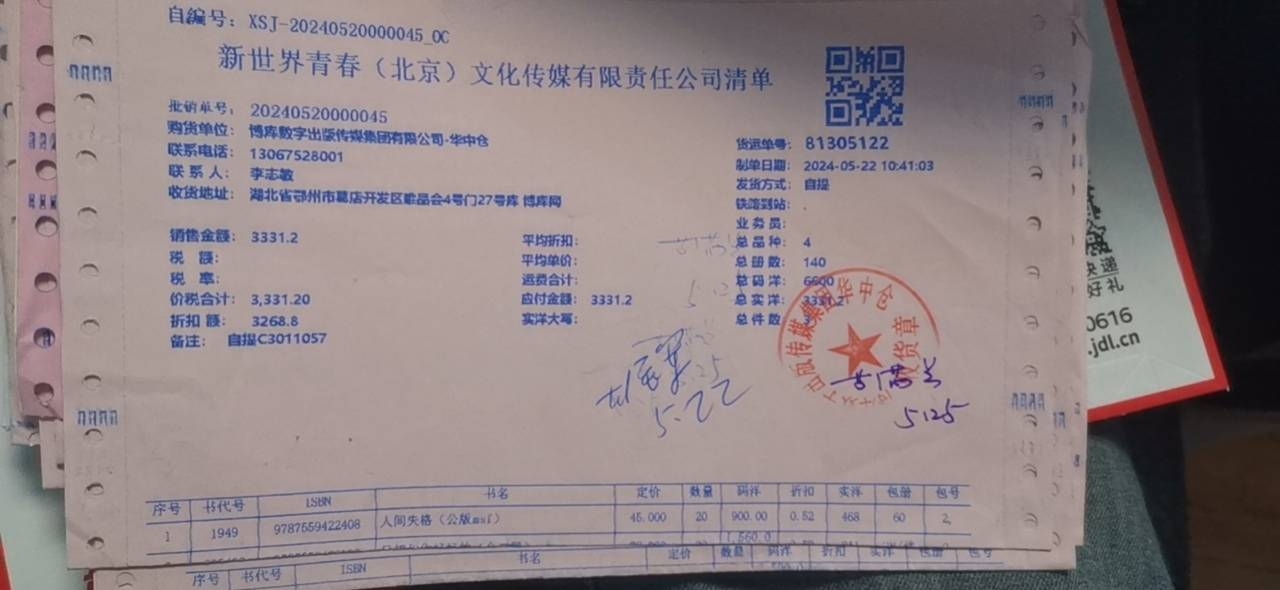 自编号：XSJ-20240520000045_0C
新世界青春（北京）文化传媒有限责任公司清单
批销单号：20240520000045
购货单位：博库数字出版传媒集团有限公司-华中仓
联系电话：13067528001
联 系 人：李志敏
收货地址：湖北省鄂州市葛店开发区唯品会4号门27号库 博库网
货运单号：81305122
制单日期：2024-05-22 10:41:03
发货方式：自提
铁路到站：.
业 务 员：
销售金额：3331.2 平均折扣： 总 品 种：4
税 额： 平均单价： 总 册 数：140
税 率： 运费合计： 总 码 洋：6600
价税合计：3,331.20 应付金额：3331.2 总 实 洋：3331.2
折扣 额：3268.8 实洋大写： 总 件 数：
备注：自提C3011057
出版传媒集团华中仓
收货章
5.22
5.125
序号 书代号 ISBN 书名 定价 数量 码洋 折扣 实洋 包册 包号
1 1949 9787559422408 人间失格（公版msf） 45.000 20 900.00 0.52 468 60 2
1,560.0
序号 书代号 ISBN 书名 定价 数量 码洋 折扣 实洋 包册 包号
快递
好礼
0616
.jdl.cn